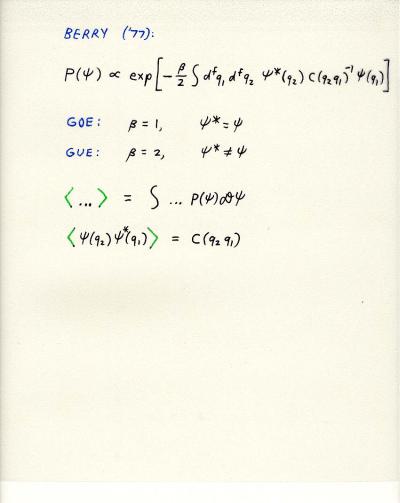 BERRY ('77):
P(ψ) ∝ exp[-β/2 ∫ dᶠq₁ dᶠq₂ ψ*(q₂) C(q₂q₁)⁻¹ ψ(q₁)]
GOE: β = 1, ψ* = ψ
GUE: β = 2, ψ* ≠ ψ
⟨...⟩ = ∫ ... P(ψ)𝒟ψ
⟨ψ(q₂)ψ*(q₁)⟩ = C(q₂q₁)